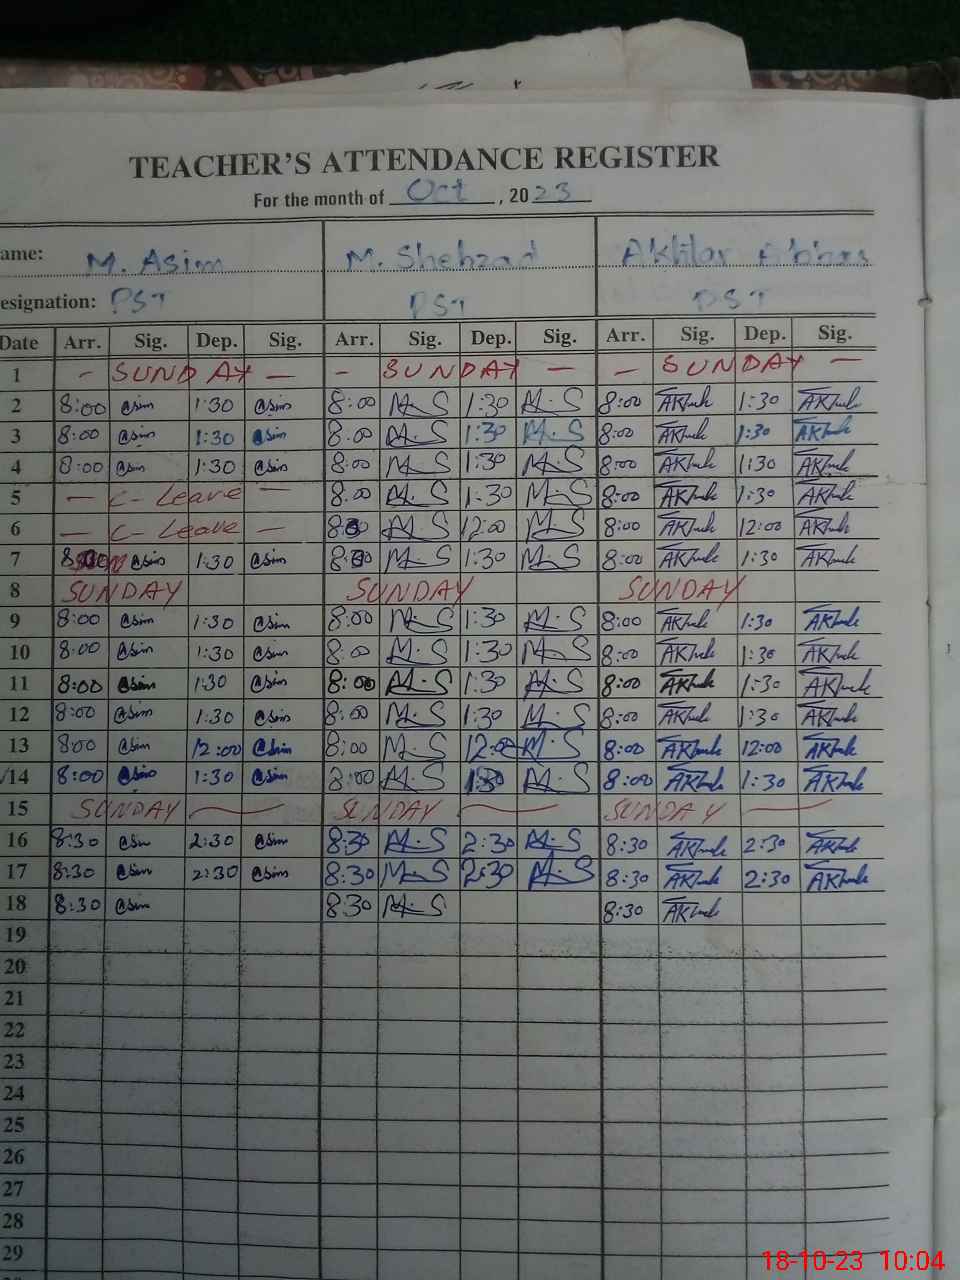 TEACHER'S ATTENDANCE REGISTER
For the month of Oct, 2023
ame: M. Asim M. Shehzad Akhtar Abbas
esignation: PST PST PST
Date Arr. Sig. Dep. Sig. Arr. Sig. Dep. Sig. Arr. Sig. Dep. Sig.
1 - SUNDAY - - SUNDAY - - SUNDAY -
2 8:00 Asim 1:30 Asim 8:00 M.S 1:30 M.S 8:00 1:30
3 8:00 Asim 1:30 Asim 8:00 M.S 1:30 M.S 8:00 1:30
4 8:00 Asim 1:30 Asim 8:00 M.S 1:30 M.S 8:00 1:30
5 - C-Leave - 8:00 M.S 1:30 M.S 8:00 1:30
6 - C-Leave - M.S 12:00 M.S 8:00 12:00
7 Asim 1:30 Asim M.S 1:30 M.S 8:00 1:30
8 SUNDAY SUNDAY SUNDAY
9 8:00 Asim 1:30 Asim 8:00 M.S 1:30 M.S 8:00 1:30
10 8:00 Asim 1:30 Asim 8:00 M.S 1:30 M.S 8:00 1:30
11 8:00 Asim 1:30 Asim 8:00 M.S 1:30 M.S 8:00 1:30
12 8:00 Asim 1:30 Asim 8:00 M.S 1:30 M.S 8:00 1:30
13 8:00 Asim 12:00 Asim 8:00 M.S 12:00 M.S 8:00 12:00
14 8:00 Asim 1:30 Asim 8:00 M.S 1:30 M.S 8:00 1:30
15 SUNDAY SUNDAY SUNDAY
16 8:30 Asim 2:30 Asim 8:30 M.S 2:30 M.S 8:30 2:30
17 8:30 Asim 2:30 Asim 8:30 M.S 2:30 M.S 8:30 2:30
18 8:30 Asim 8:30 M.S 8:30
19
20
21
22
23
24
25
26
27
28
29
18-10-23 10:04